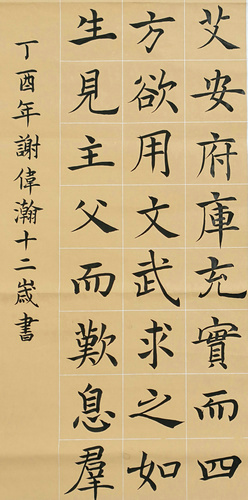 艾安府庫充實而四
方欲用文武求之如
生見主父而歎息羣
丁酉年謝偉瀚十二歲書